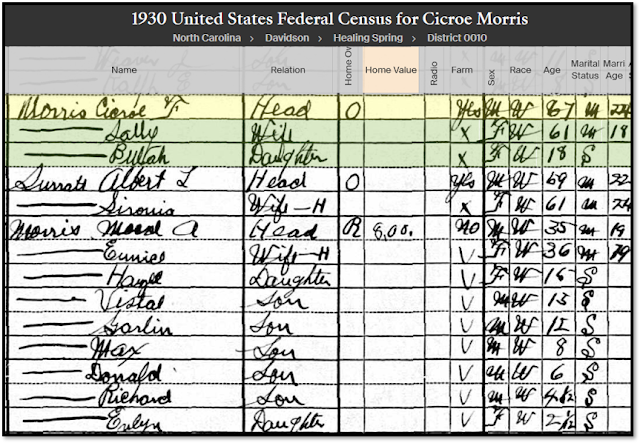 1930 United States Federal Census for Cicroe Morris
North Carolina > Davidson > Healing Spring > District 0010
Name Relation Home Ow Home Value Radio Farm Sex Race Age Marital Status Marri Age
Morris Cicroe F Head O Yes M W 67 M
Sally Wife X F W 61 M 18
Bulah Daughter X F W 18 S
Surratt Albert L Head O Yes M W 59 M 22
Wife-H X F W 61 M 24
Morris A Head R 8.00. No M W 35 M 19
Eunice Wife-H V F W 36 M
Hazel Daughter V F W 16 S
Vistal Son V M W 13 S
Garlin Son V M W 12 S
Max Son V M W 8 S
Donald Son V M W 6 S
Richard Son V M W S
Evlyn Daughter V F W S